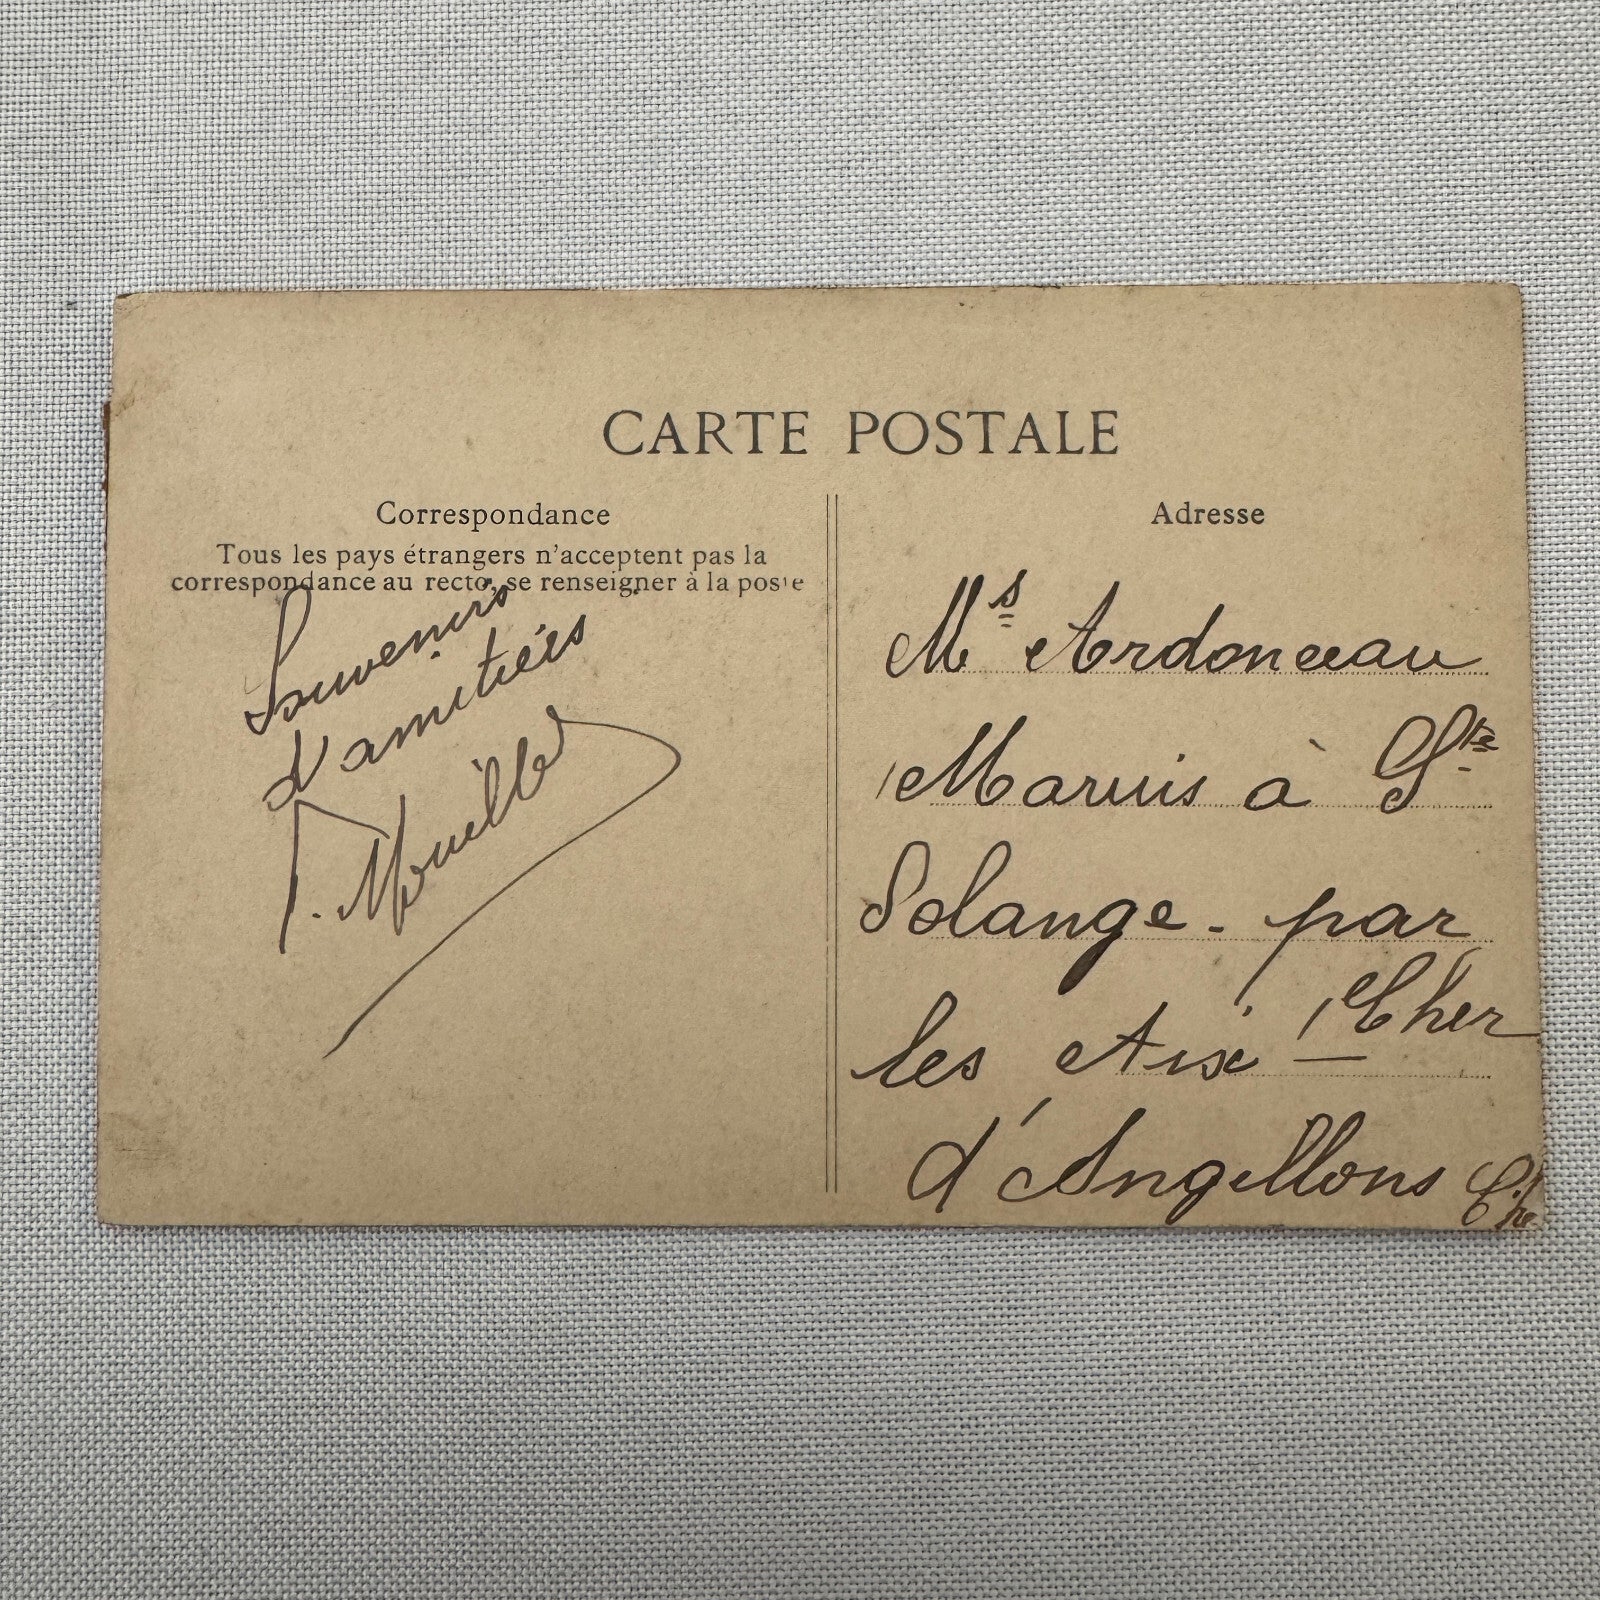 CARTE POSTALE
Correspondance
Tous les pays étrangers n'acceptent pas la
correspondance au recto, se renseigner à la poste
Souvenirs
d'amitiés
Adresse
Ms Ardonceau
Marius à Ste
Solange - par
les Aix Cher
d'Angillons